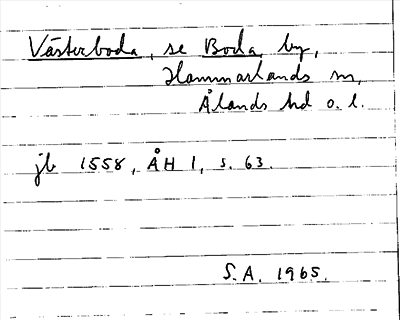 Västerboda, se Boda, by,
Hammarlands sn,
Ålands hd o. l.
jb 1558, ÅH 1, s. 63.
S.A. 1965.